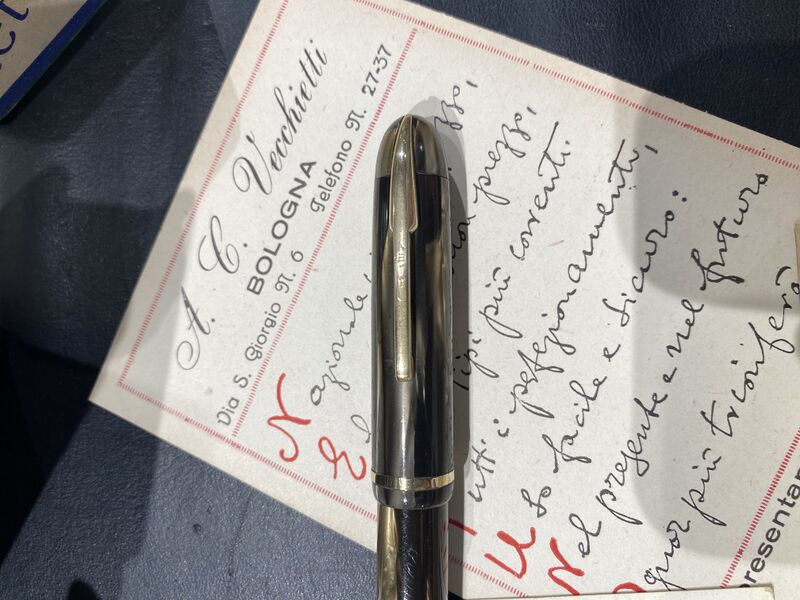 A. C. Vecchietti
BOLOGNA
Via S. Giorgio N. 6 Telefono N. 27-37
Nazionale, zzo,
prezzo,
Tipi più correnti.
Tutti i perfezionamenti,
Uso facile e sicuro:
Nel presente e nel futuro
Ognor più trionferà
presentan